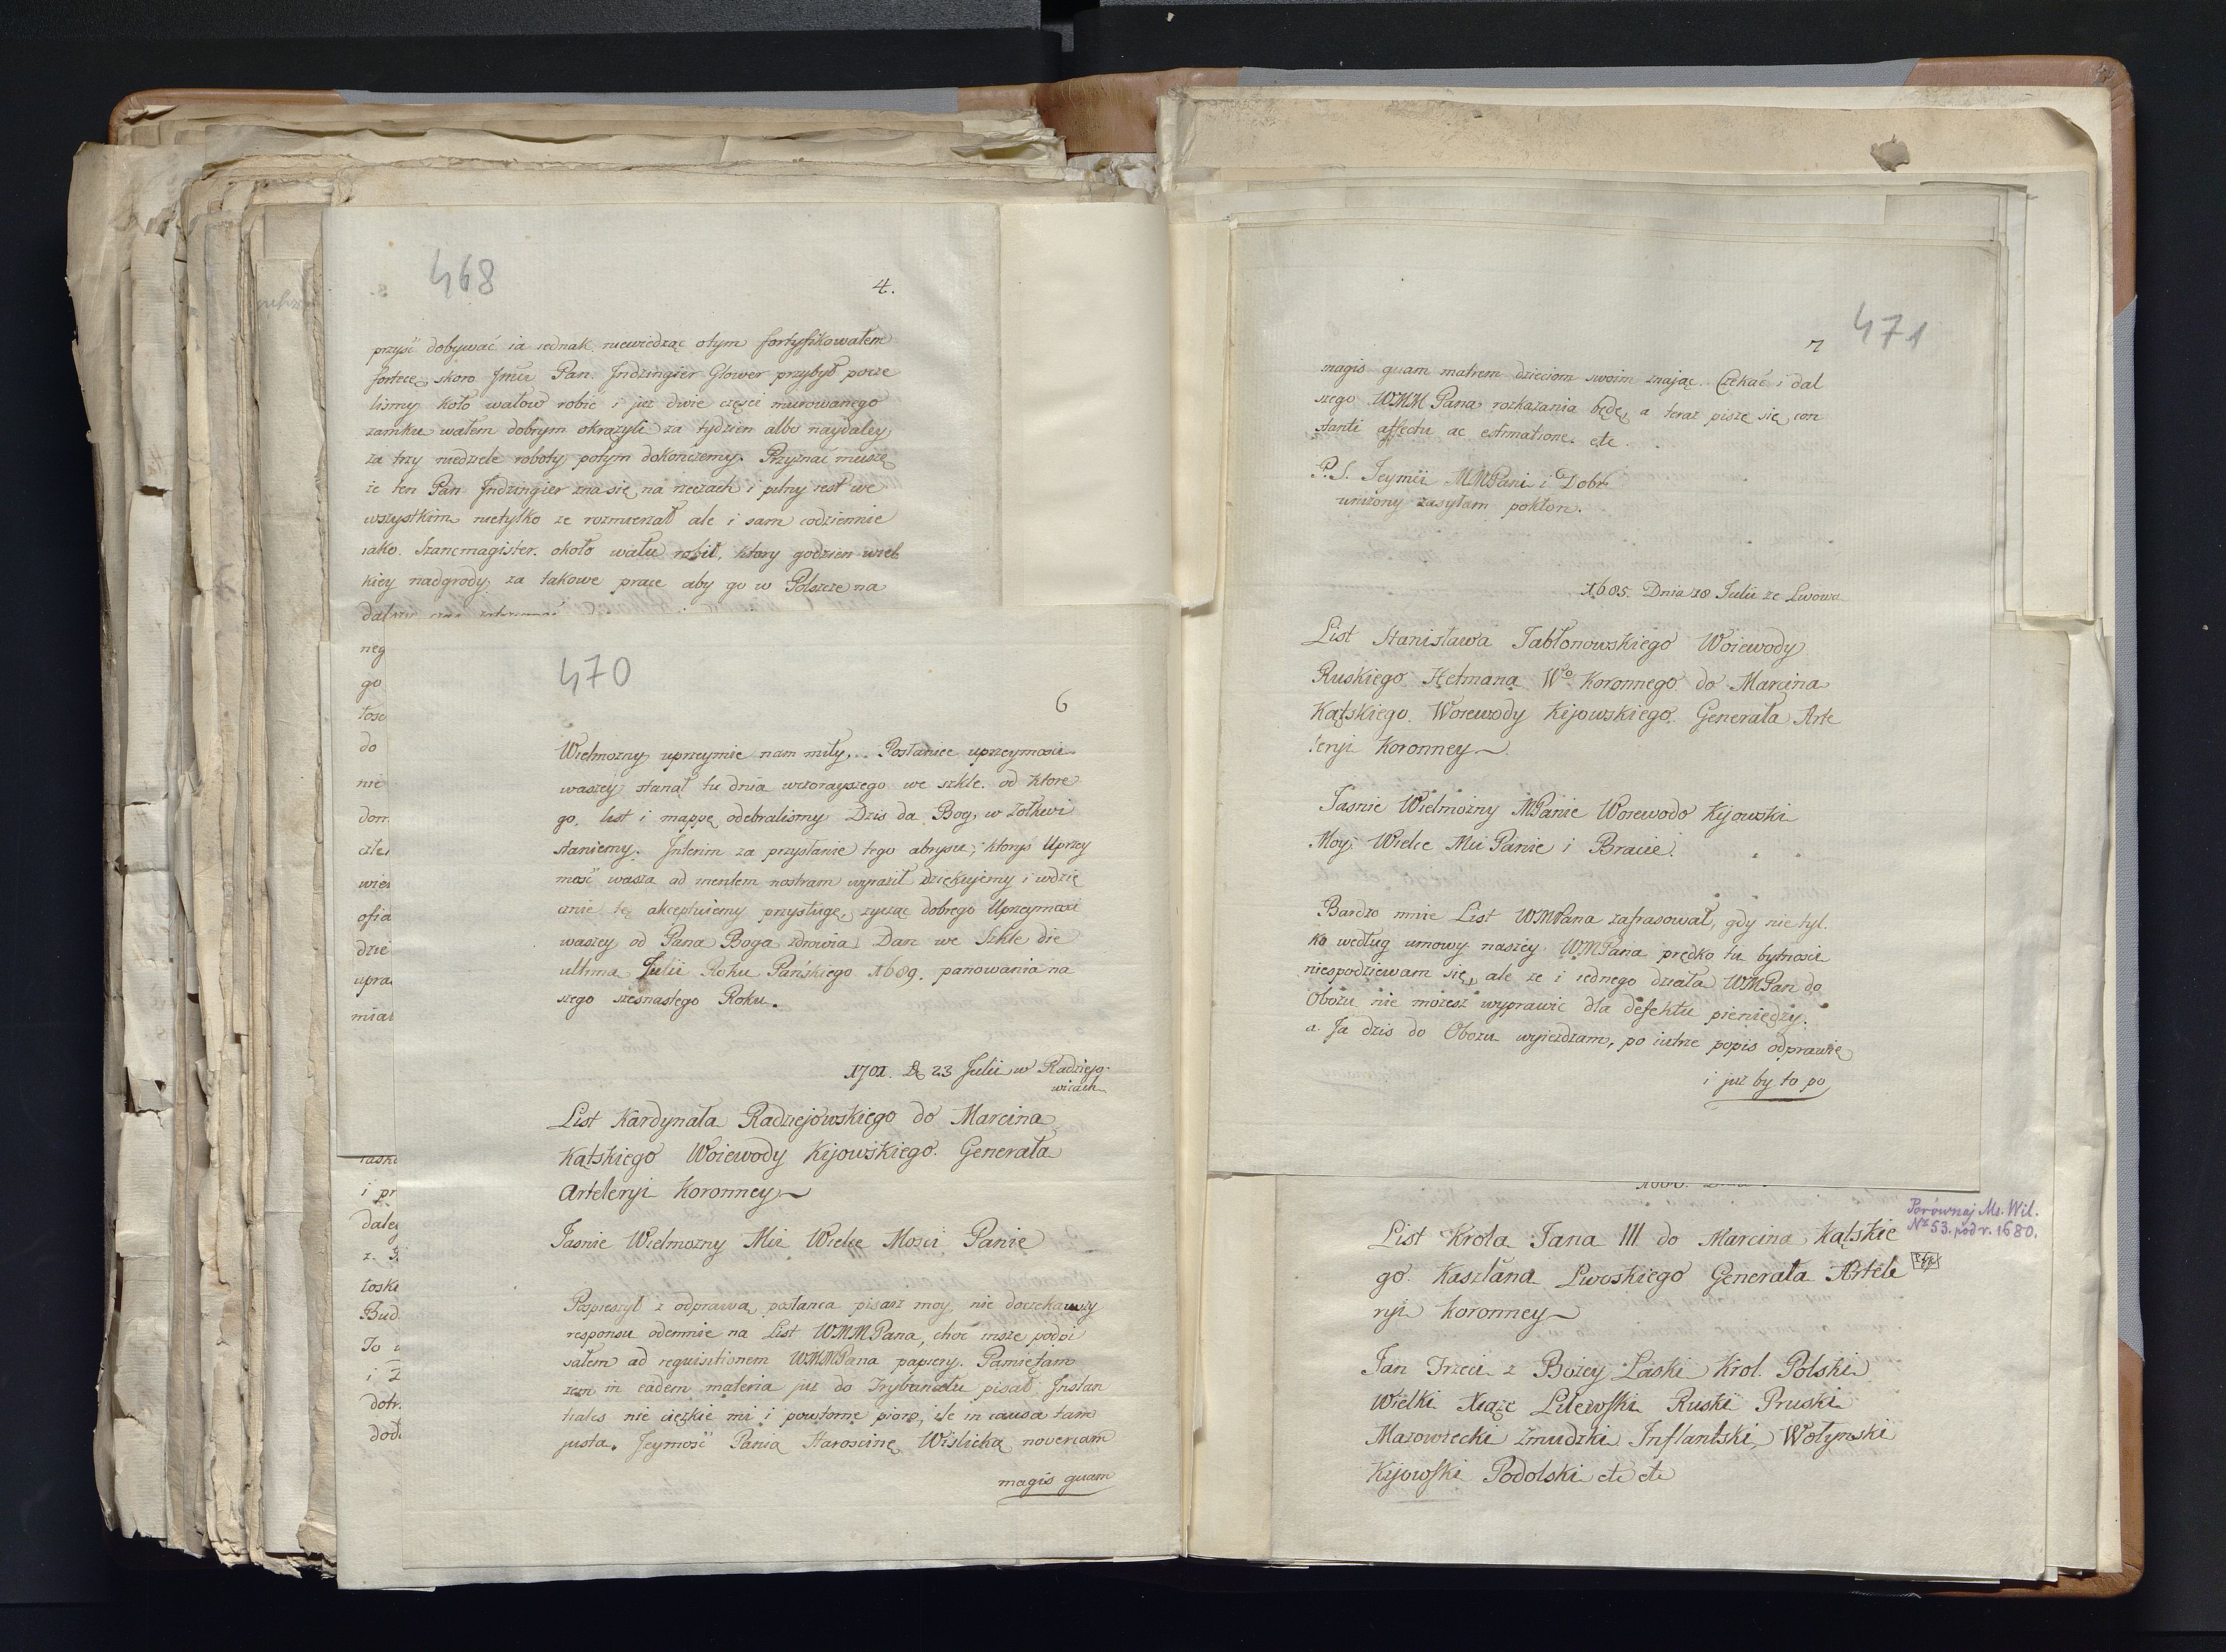 468
4.
przyść dobywać ia iednak niewiedząc otym fortyfikowałem
fortecę skoro Jmci Pan Jndzingier Glower przybył pocze
lismy koło wałow robić i już dwie częsci murowanego
zamku wałem dobrym okrążyli za tydzien albo naydaley
za trzy niedziele roboty potym dokonczemy. Przyznać muszę
że ten Pan Jndzingier zna się na rzeczach i pilny iest we
wszystkim nietylko że rozmierzał ale i sam codziennie
iako Szancmagister około wału robił, ktory godzien wiel
kiey nadgrody za takowe prace aby go w Polszcze na
neg
go
tosc
do
nie
dom
człe
wier
ofia
dzie
upra
miar
i pr
daley
toski
Bud
To
i
dotr
doda
470
6
Wielmozny uprzeymie nam miły... Posłaniec uprzeymosci
waszey stanął tu dnia wczorayszego we szkle. od ktore
go list i mappę odebralismy Dzis da Bog w Zołkwi
staniemy. Interim za przysłanie tego abrysu, ktoryś Uprzey
mość wasza ad mentem nostram wyraził dziękujemy i wdzię
cznie tę akceptuiemy przysługę, zycząc dobrego Uprzeymosci
waszey od Pana Boga zdrowia Dan we Szkle die
ultima Julii Roku Pańskiego 1689. panowania na
szego szesnastego Roku.
1701. D 23 Julii w Radziejo
wicach
List Kardynała Radziejowskiego do Marcina
Kątskiego Woiewody Kijowskiego Generała
Arteleryi Koronney
Jasnie Wielmozny Mci Wielce Mosci Panie
Pospieszył z odprawą posłanca pisarz moy, nie doczekawszy
responsu odemnie na List WMM Pana, choć insze podpi
sałem ad requisitionem WMMPana papiery. Pamiętam
zem in eadem materia już do Trybunału pisał Jnstan
tiales nie cięzkie mi i powtorne pioro, ile in causa tam
justa. Jeymość Panią Staroscinę Wislicką novercam
magis quam
471
7
magis quam matrem dzieciom swoim znając. Czekać i dal
szego WMM Pana rozkazania będę, a teraz piszę się con
stanti affectu ac estimatione. etc.
P.S. Jeymci MMPani i Dobr
unizony zasyłam pokłon.
1685. Dnia 20 Julii ze Lwowa
List Stanisława Jabłonowskiego Woiewody
Ruskiego Hetmana Wo Koronnego do Marcina
Kątskiego Woiewody Kijowskiego Generała Arte
leryi Koronney
Jasnie Wielmozny MPanie Woiewodo Kijowski
Moy Wielce Mci Panie i Bracie.
Bardzo mnie List WMPana zafrasował, gdy nie tyl
ko według umowy naszey WMPana prędko tu bytnosci
niespodziewam się, ale ze i iednego działa WMPan do
Obozu nie mozesz wyprawic dla defektu pieniędzy.
a Ja dzis do Obozu wyiezdzam, po iutrze popis odprawię
i już by to po
Porównaj Ms. Wil.
No 53. pod r. 1680.
List Krola Jana III do Marcina Kątskie
go Kasztana Lwoskiego Generała Artele
ryi Koronney
Jan Trzeci z Bożey Laski Krol Polski
Wielki Xiąże Litewski Ruski Pruski
Mazowiecki Zmudzki Inflantski, Wołynski
Kijowski Podolski etc etc